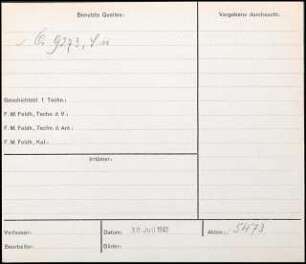 Benutzte Quellen:
Vergebens durchsucht:
Geschichtsbl. f. Techn.:
F. M. Feldh., Techn. d. V.:
F. M. Feldh., Techn. d. Ant.:
F. M. Feldh., Kal.:
Irrtümer:
Verfasser:
Datum:
Akten:
5473
Bearbeiter:
Bilder: